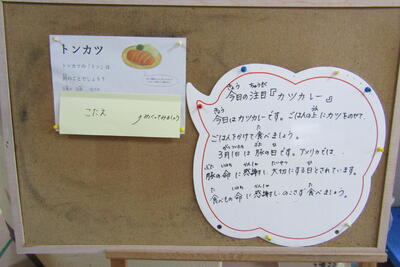 トンカツ
トンカツの「トン」は
何のことでしょう？
こたえ
めくってみましょう
今日の注目『カツカレー』
今日はカツカレーです。ごはんの上にカツをのせて、
ごはんをかけて食べましょう。
3月1日は豚の日です。アメリカでは
豚の命に感謝し大切にする日とされています。
食べもの命に感謝し、のこさず食べましょう。